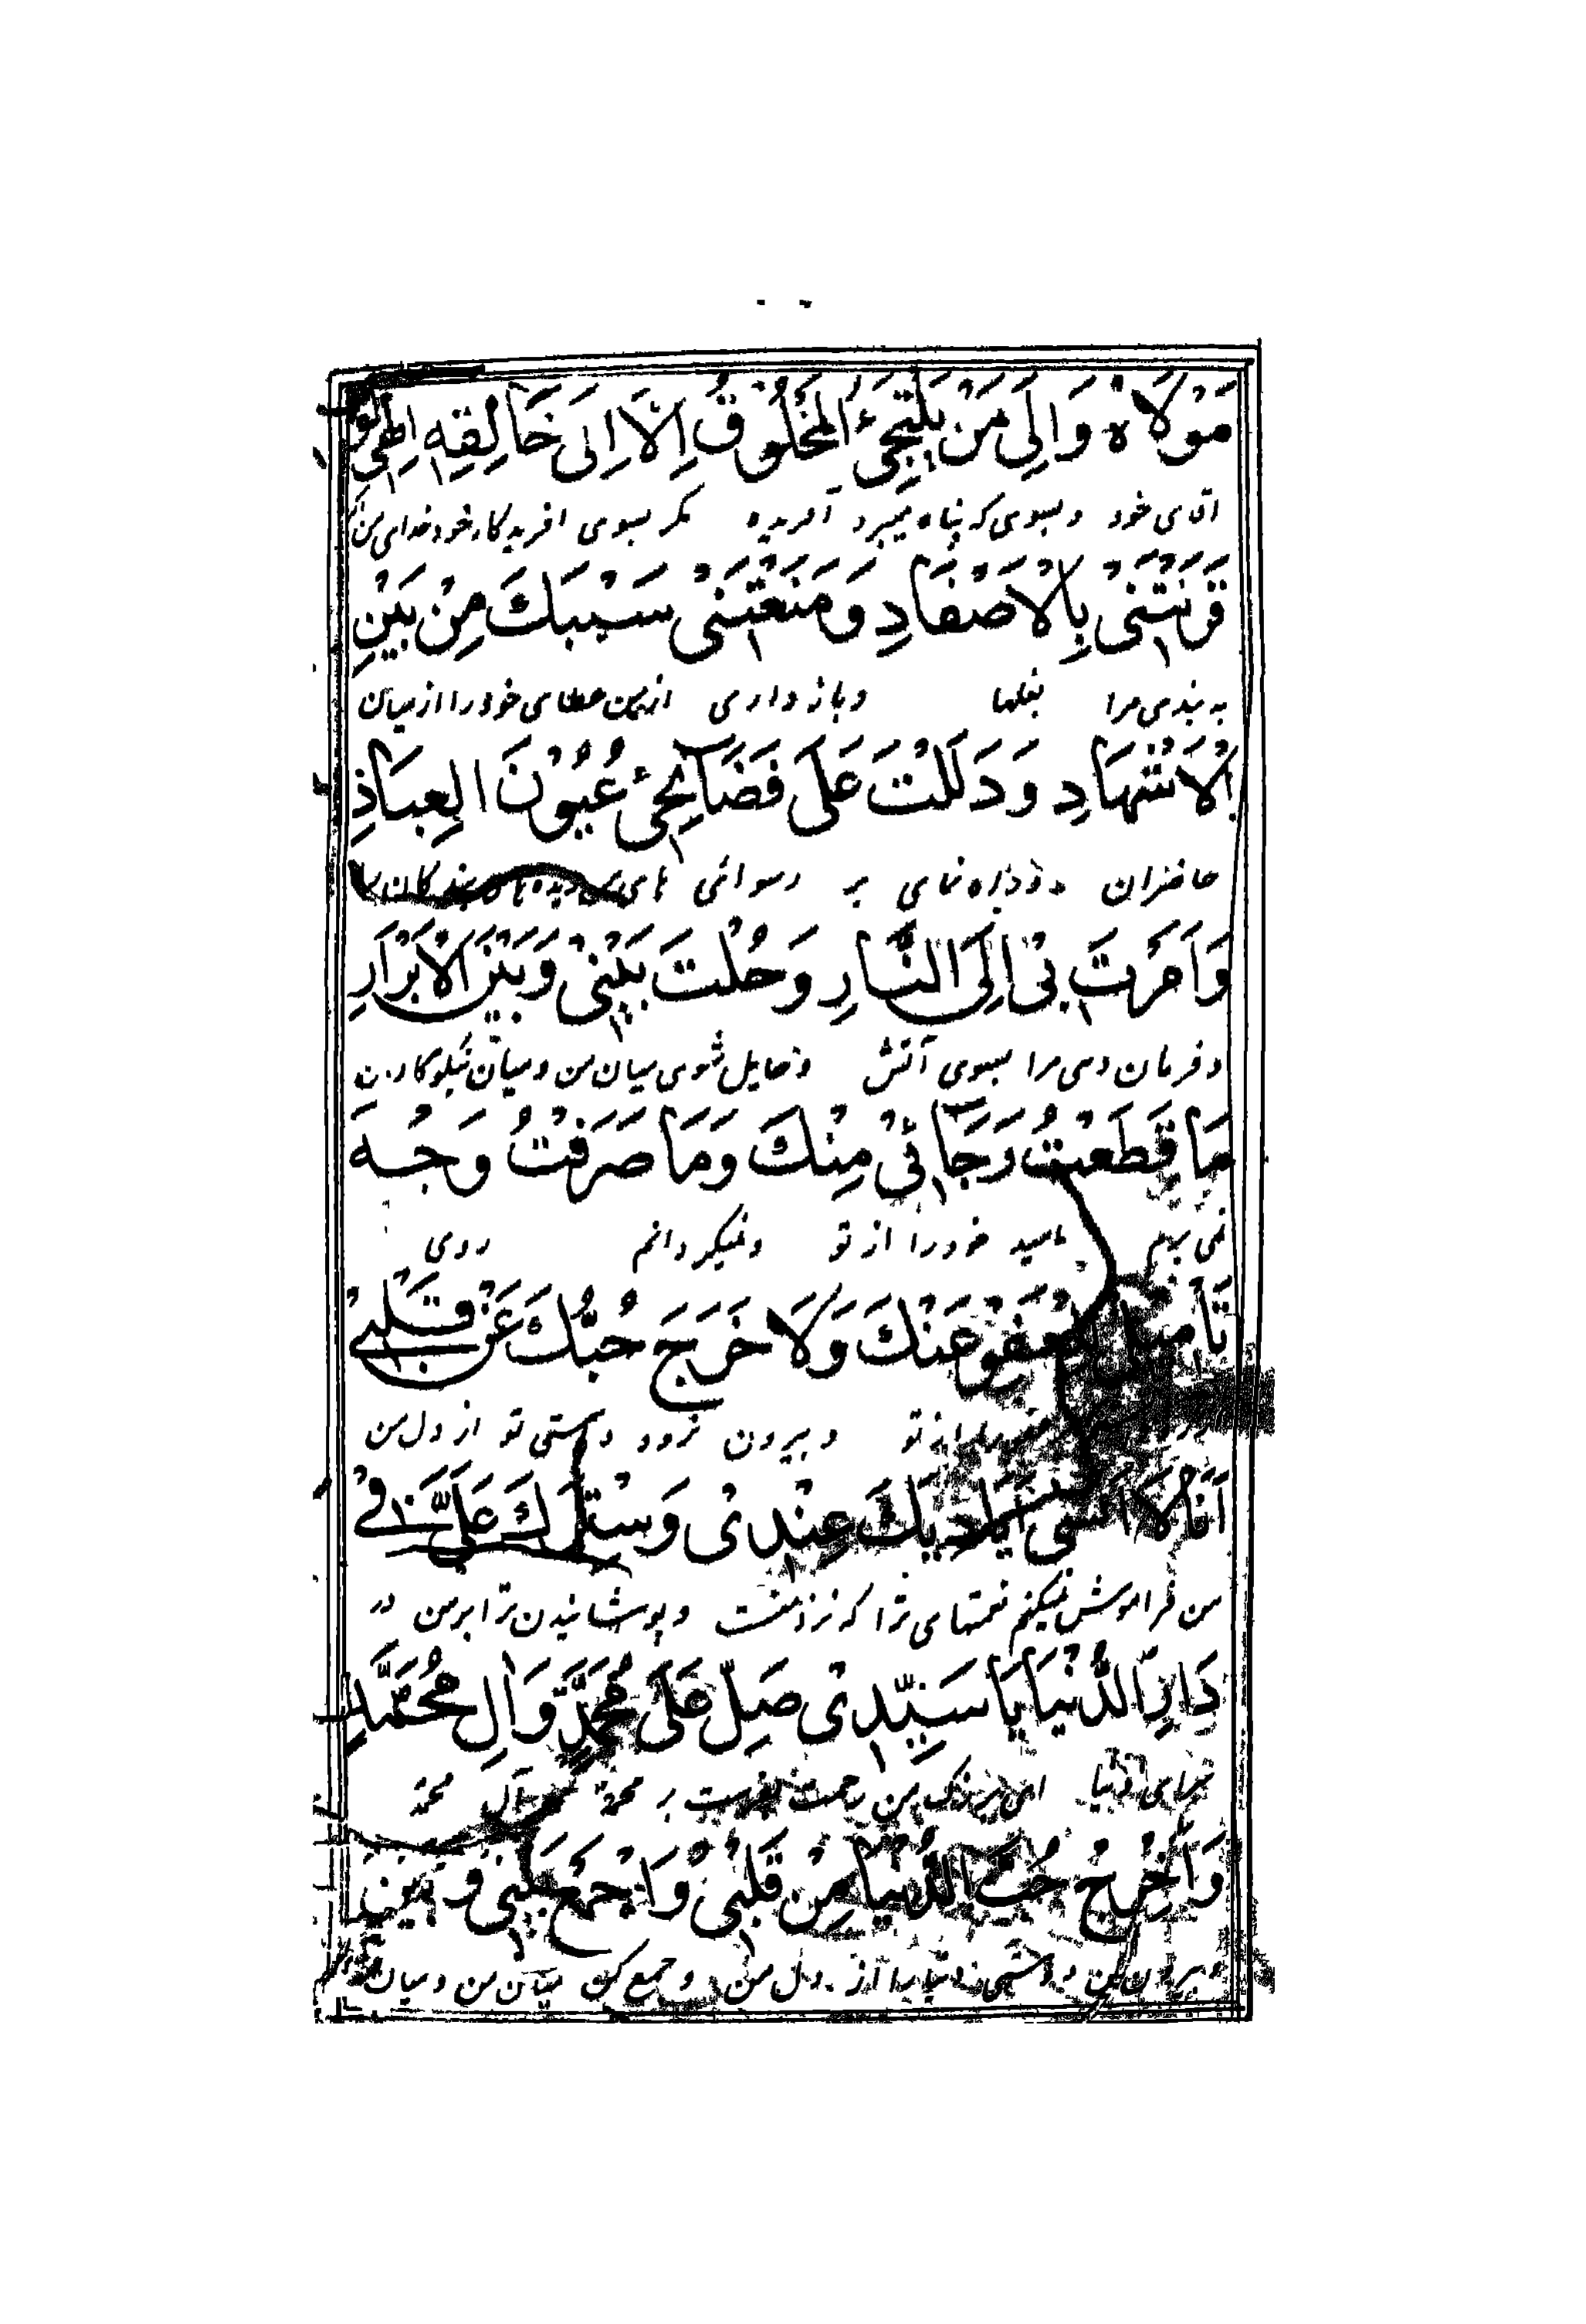 مَوْلَاهُ وَاِلىٰ مَنْ يَلْتَجِیءُ المَخْلُوقُ اِلَّا اِلىَ خَالِقِهِ اِلٰهِی لَوْ
اقای خود وبسوی که پناه میبرد آفریده مکر بسوی افریدکار خود خدای من
قَرَنْتَنیٖ بِالاَصْفَادِ وَمَنَعْتَنیٖ سَيْبَكَ مِنْ بَيْنِ
به بندی مرا بغلها وبازداری از من عطای خود را از میان
الْاَشْهَادِ وَدَلَلْتَ عَلىَ فَضَايِحیٖ عُيُوْنَ العِبَادِ
حاضران نمای بر رسوائی های
وَاَمَرْتَ بیٖ اِلَى النَّارِ وَحُلْتَ بَيْنیٖ وَبَيْنَ الْاَبْرَارِ
وفرمان دهی مرا بسوی آتش وحایل شوی میان من ومیان نیکوکاران
مَا قَطَعْتُ رَجَائیٖ مِنْكَ وَمَا صَرَفْتُ وَجْهَ
نمی برم امید خود را از تو ونمیکردانم روی
تَأمِيْلیٖ لِلْعَفْوِ عَنْكَ وَلَا خَرَجَ حُبُّكَ عَنْ قَلْبیٖ
از تو وبیرون نرود دوستی تو از دل من
اَنَا لَا اَنْسىٰ اَيَادِيْكَ عِنْدِیْ وَسَتْرَكَ عَلَیَّ فیْ
من فراموش نمیکنم نعمتهای ترا که نزد منست وپوشانیدن ترا بر من در
دَارِ الدُّنْيَا يَا سَيِّدِیْ صَلِّ عَلىٰ مُحَمَّدٍ وَآلِ مُحَمَّدٍ
دنیا ای بزرک من رحمت بفرست بر محمد وآل محمد
وَاَخْرِجْ حُبَّ الدُّنْيَا مِنْ قَلْبیٖ وَاجْمَعْ بَيْنیٖ وَبَيْنَ
وبیرون کن دوستی دنیا را از دل من وجمع کن میان من ومیان